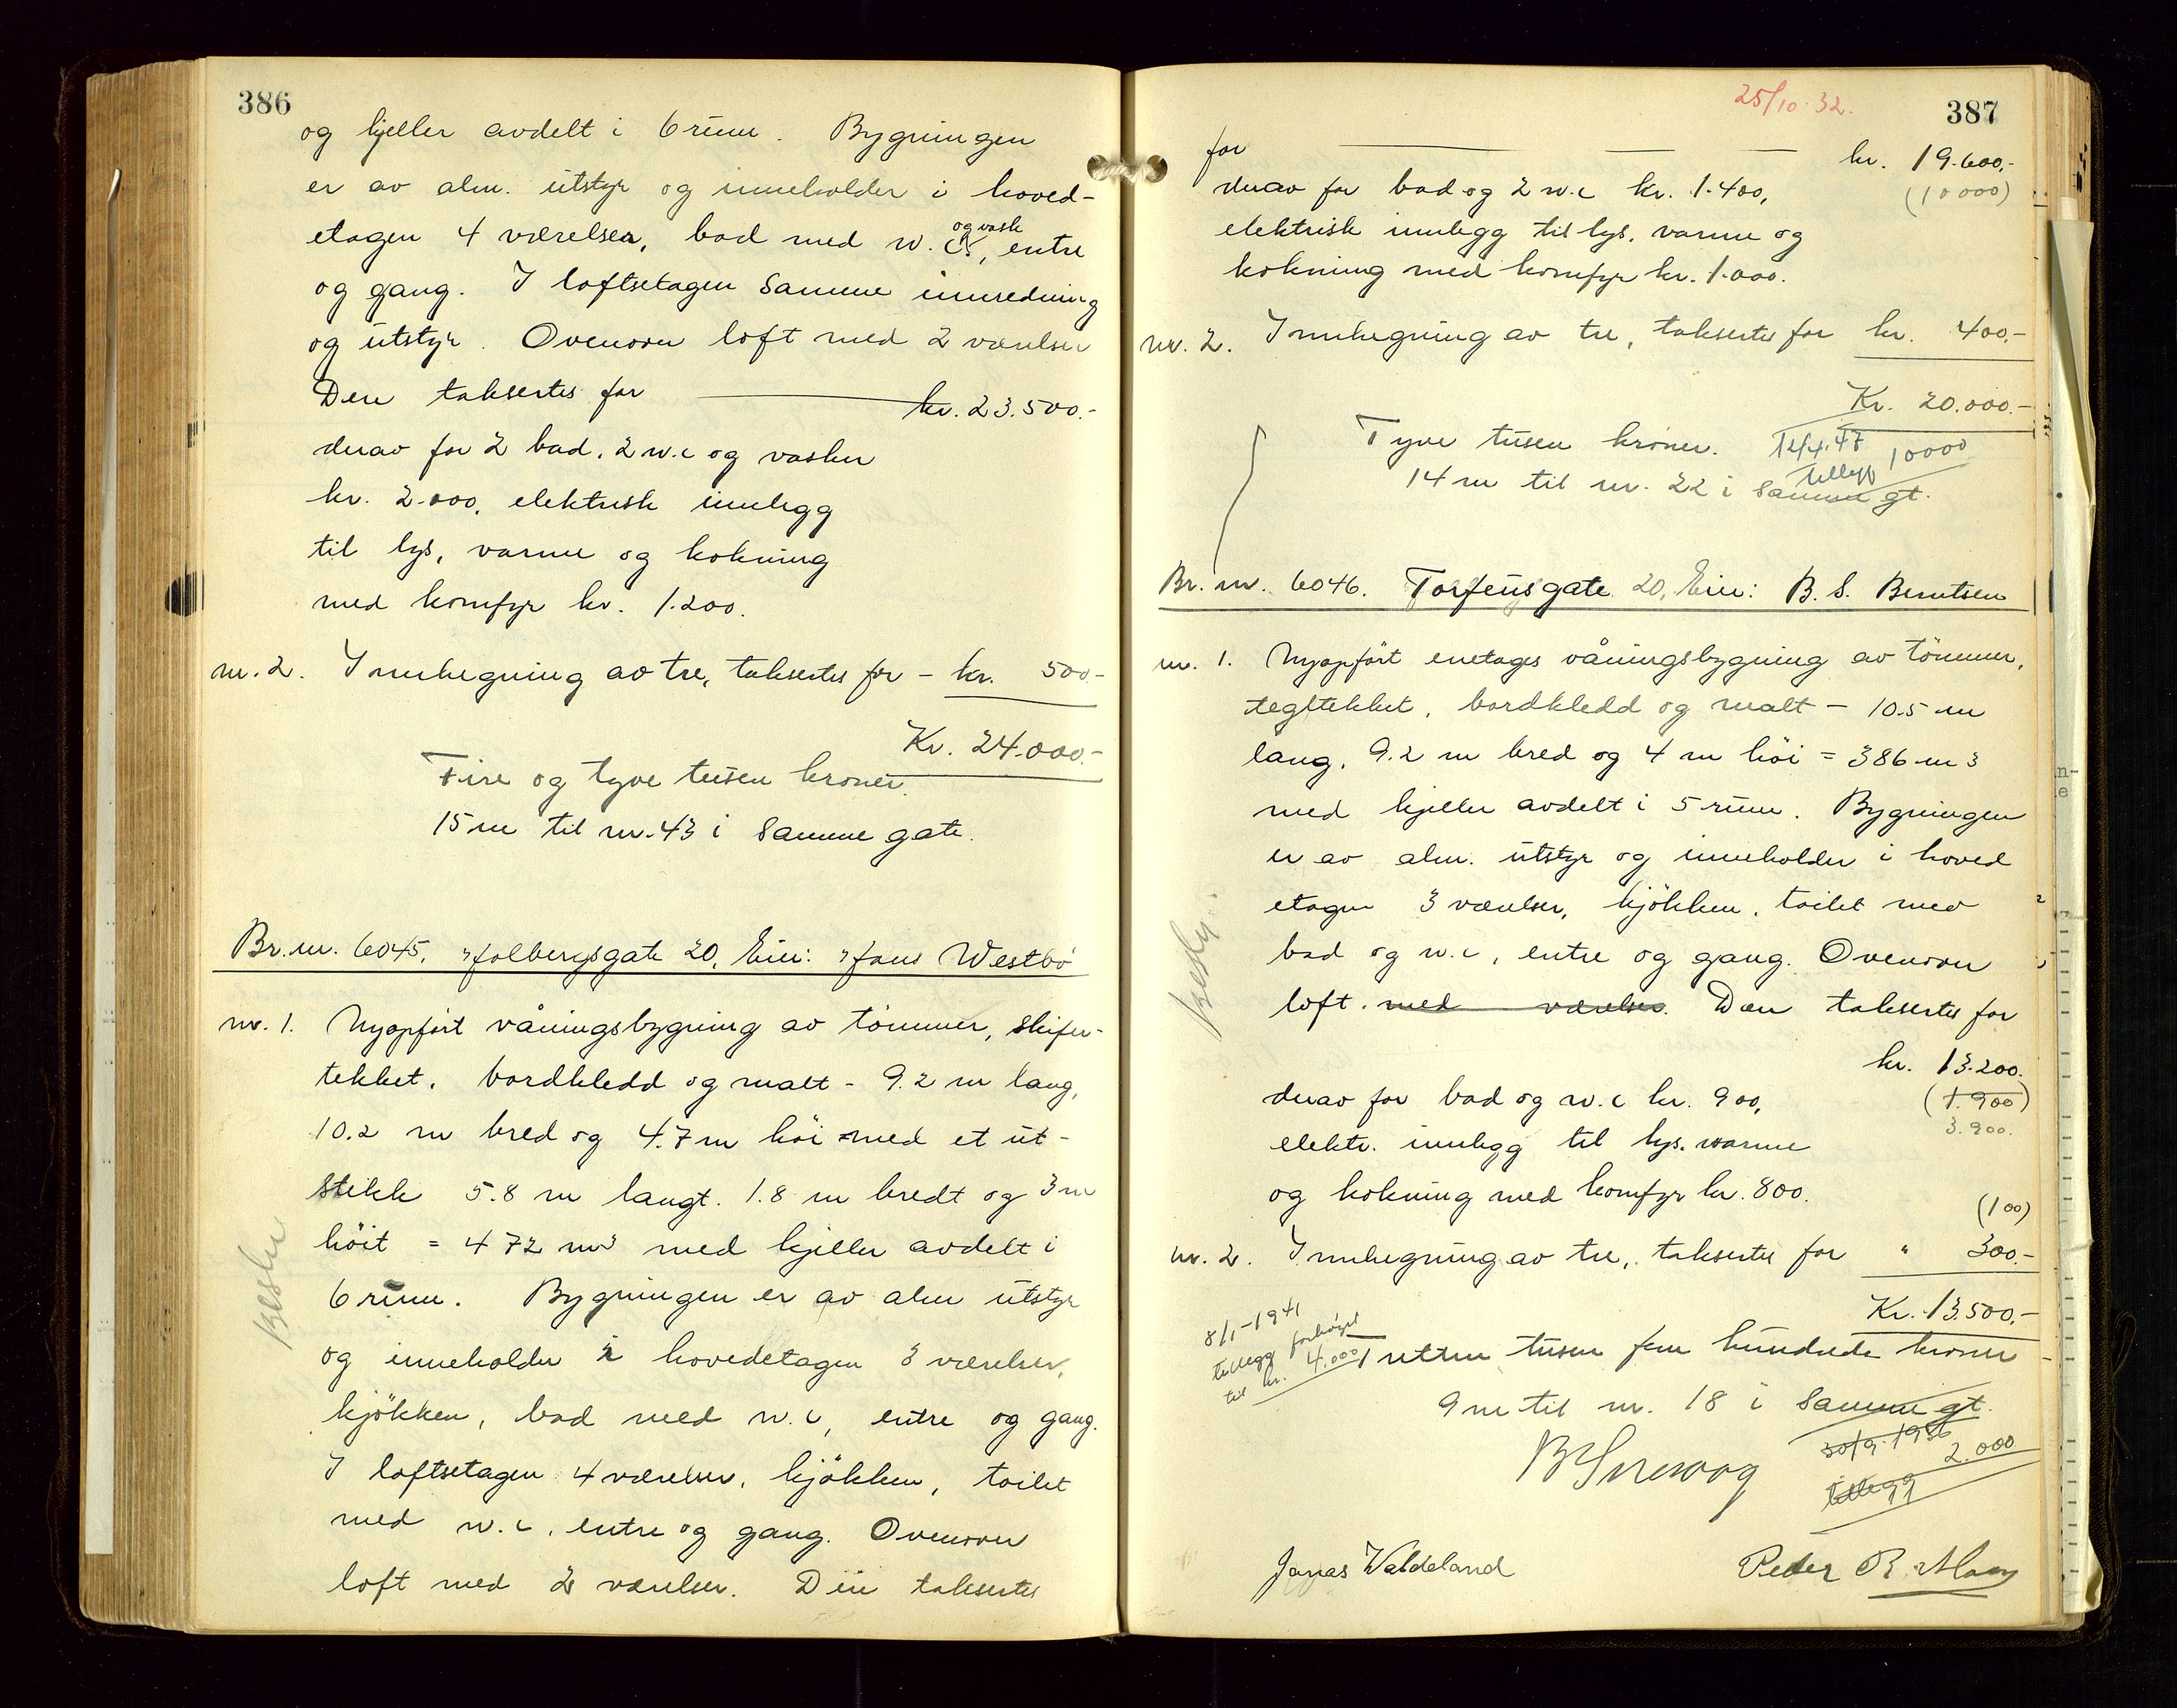 386
og kjeller avdelt i 6 rum. Bygningen
er av alm. utstyr og inneholder i hoved-
etagen 4 værelser, bad med w.c. og vask, entre
og gang. I loftsetagen samme innredning
og utstyr. Ovenover loft med 2 værelser
Den taksertes for kr. 23.500.-
derav for 2 bad, 2 w.c og vasker
kr. 2.000, elektrisk innlegg
til lys, varme og kokning
med komfyr kr. 1.200.
nr. 2. Innhegning av tre, taksertes for - kr. 500.-
Kr. 24.000.-
Fire og tyve tusen kroner.
15 m til nr. 43 i samme gate.
Br. nr. 6045. Holbergsgate 20, Eier: Hans Westbö
nr. 1. Nyopført våningsbygning av tömmer, skifer-
tekket, bordkledd og malt - 9.2 m lang,
10.2 m bred og 4.7 m höi med et ut-
stikk 5.8 m langt. 1.8 m bredt og 3 m
höit = 472 m3 med kjeller avdelt i
6 rum. Bygningen er av alm utstyr
og inneholder i hovedetagen 3 værelser,
kjökken, bad med w.c, entre og gang.
I loftsetagen 4 værelser, kjökken, toilet
med w.c, entre og gang. Ovenover
loft med 2 værelser. Den taksertes
25/10.32.
387
for kr. 19.600,-
derav for bad og 2 w.c kr. 1.400, (10000)
elektrisk innlegg til lys, varme og
kokning med komfyr kr. 1.000.
nr. 2. Innhegning av tre, taksertes for kr. 400,-
Kr. 20.000.-
Tyve tusen kroner. 12/4.47
tillegg 10000
14 m til nr. 22 i samme gt.
Br. nr. 6046. Torfeusgate 20, Eier: B. S. Berntsen
nr. 1. Nyopført enetages våningsbygning av tömmer,
tegltekket, bordkledd og malt - 10.5 m
lang, 9.2 m bred og 4 m höi = 386 m3
med kjeller avdelt i 5 rum. Bygningen
er av alm. utstyr og inneholder i hoved
etagen 3 værelser, kjökken, toilet med
bad og w.c, entre og gang. Ovenover
loft. med værelser. Den taksertes for
kr. 13.200.
derav for bad og w.c kr. 900, (1.900)
3.900.
elektr. innlegg til lys, varme
og kokning med komfyr kr. 800.
(100)
nr. 2. Innhegning av tre, taksertes for " 300.-
Kr. 13.500,-
8/1-1941
tillegg forhöyet
til kr. 4.000
Tretten tusen fem hundrede kroner
9 m til nr. 18 i samme gt.
30/9.1936
tillegg 2.000
Jonas Waldeland